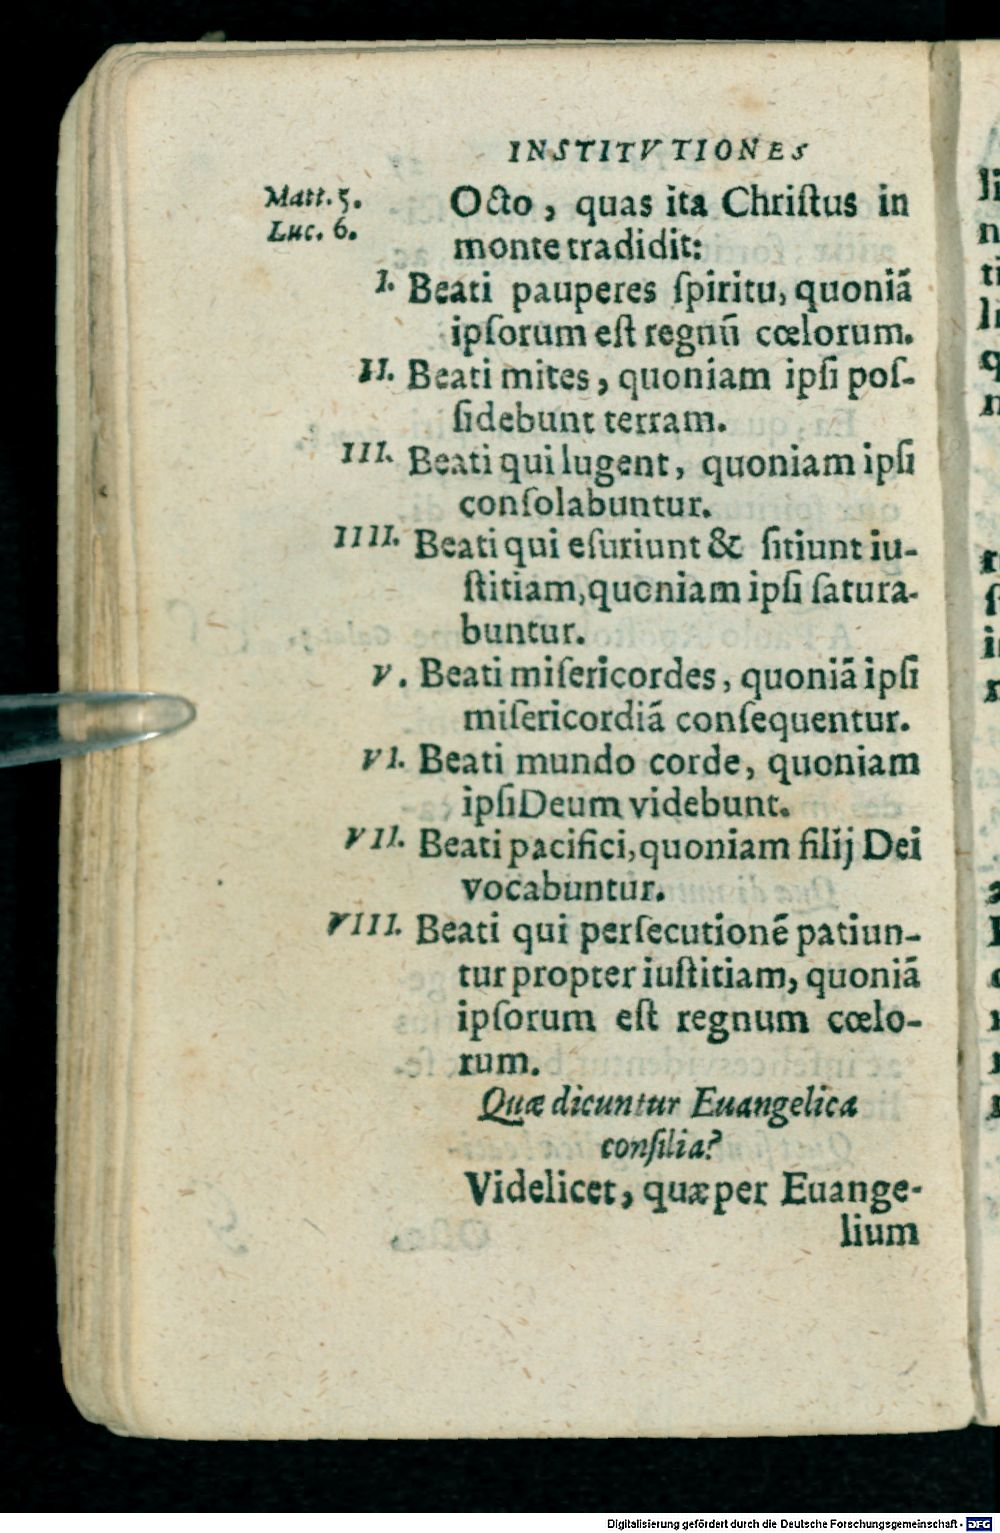 INSTITVTIONES
Matt. 5.
Luc. 6.
Octo, quas ita Chriſtus in
monte tradidit:
I. Beati pauperes ſpiritu, quoniã
ipſorum eſt regnũ cœlorum.
II. Beati mites, quoniam ipſi poſ-
ſidebunt terram.
III. Beati qui lugent, quoniam ipſi
conſolabuntur.
IIII. Beati qui eſuriunt & ſitiunt iu-
ſtitiam, quoniam ipſi ſatura-
buntur.
V. Beati miſericordes, quoniã ipſi
miſericordiã conſequentur.
VI. Beati mundo corde, quoniam
ipſi Deum videbunt.
VII. Beati pacifici, quoniam filij Dei
vocabuntur.
VIII. Beati qui perſecutionẽ patiun-
tur propter iuſtitiam, quoniã
ipſorum eſt regnum cœlo-
rum.
Quæ dicuntur Euangelica
conſilia?
Videlicet, quæ per Euange-
lium
Digitalisierung gefördert durch die Deutsche Forschungsgemeinschaft - DFG